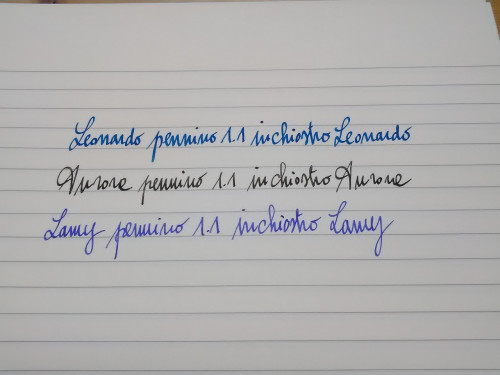 Leonardo pennino 1.1 inchiostro Leonardo
Aurora pennino 1.1 inchiostro Aurora
Lamy pennino 1.1 inchiostro Lamy